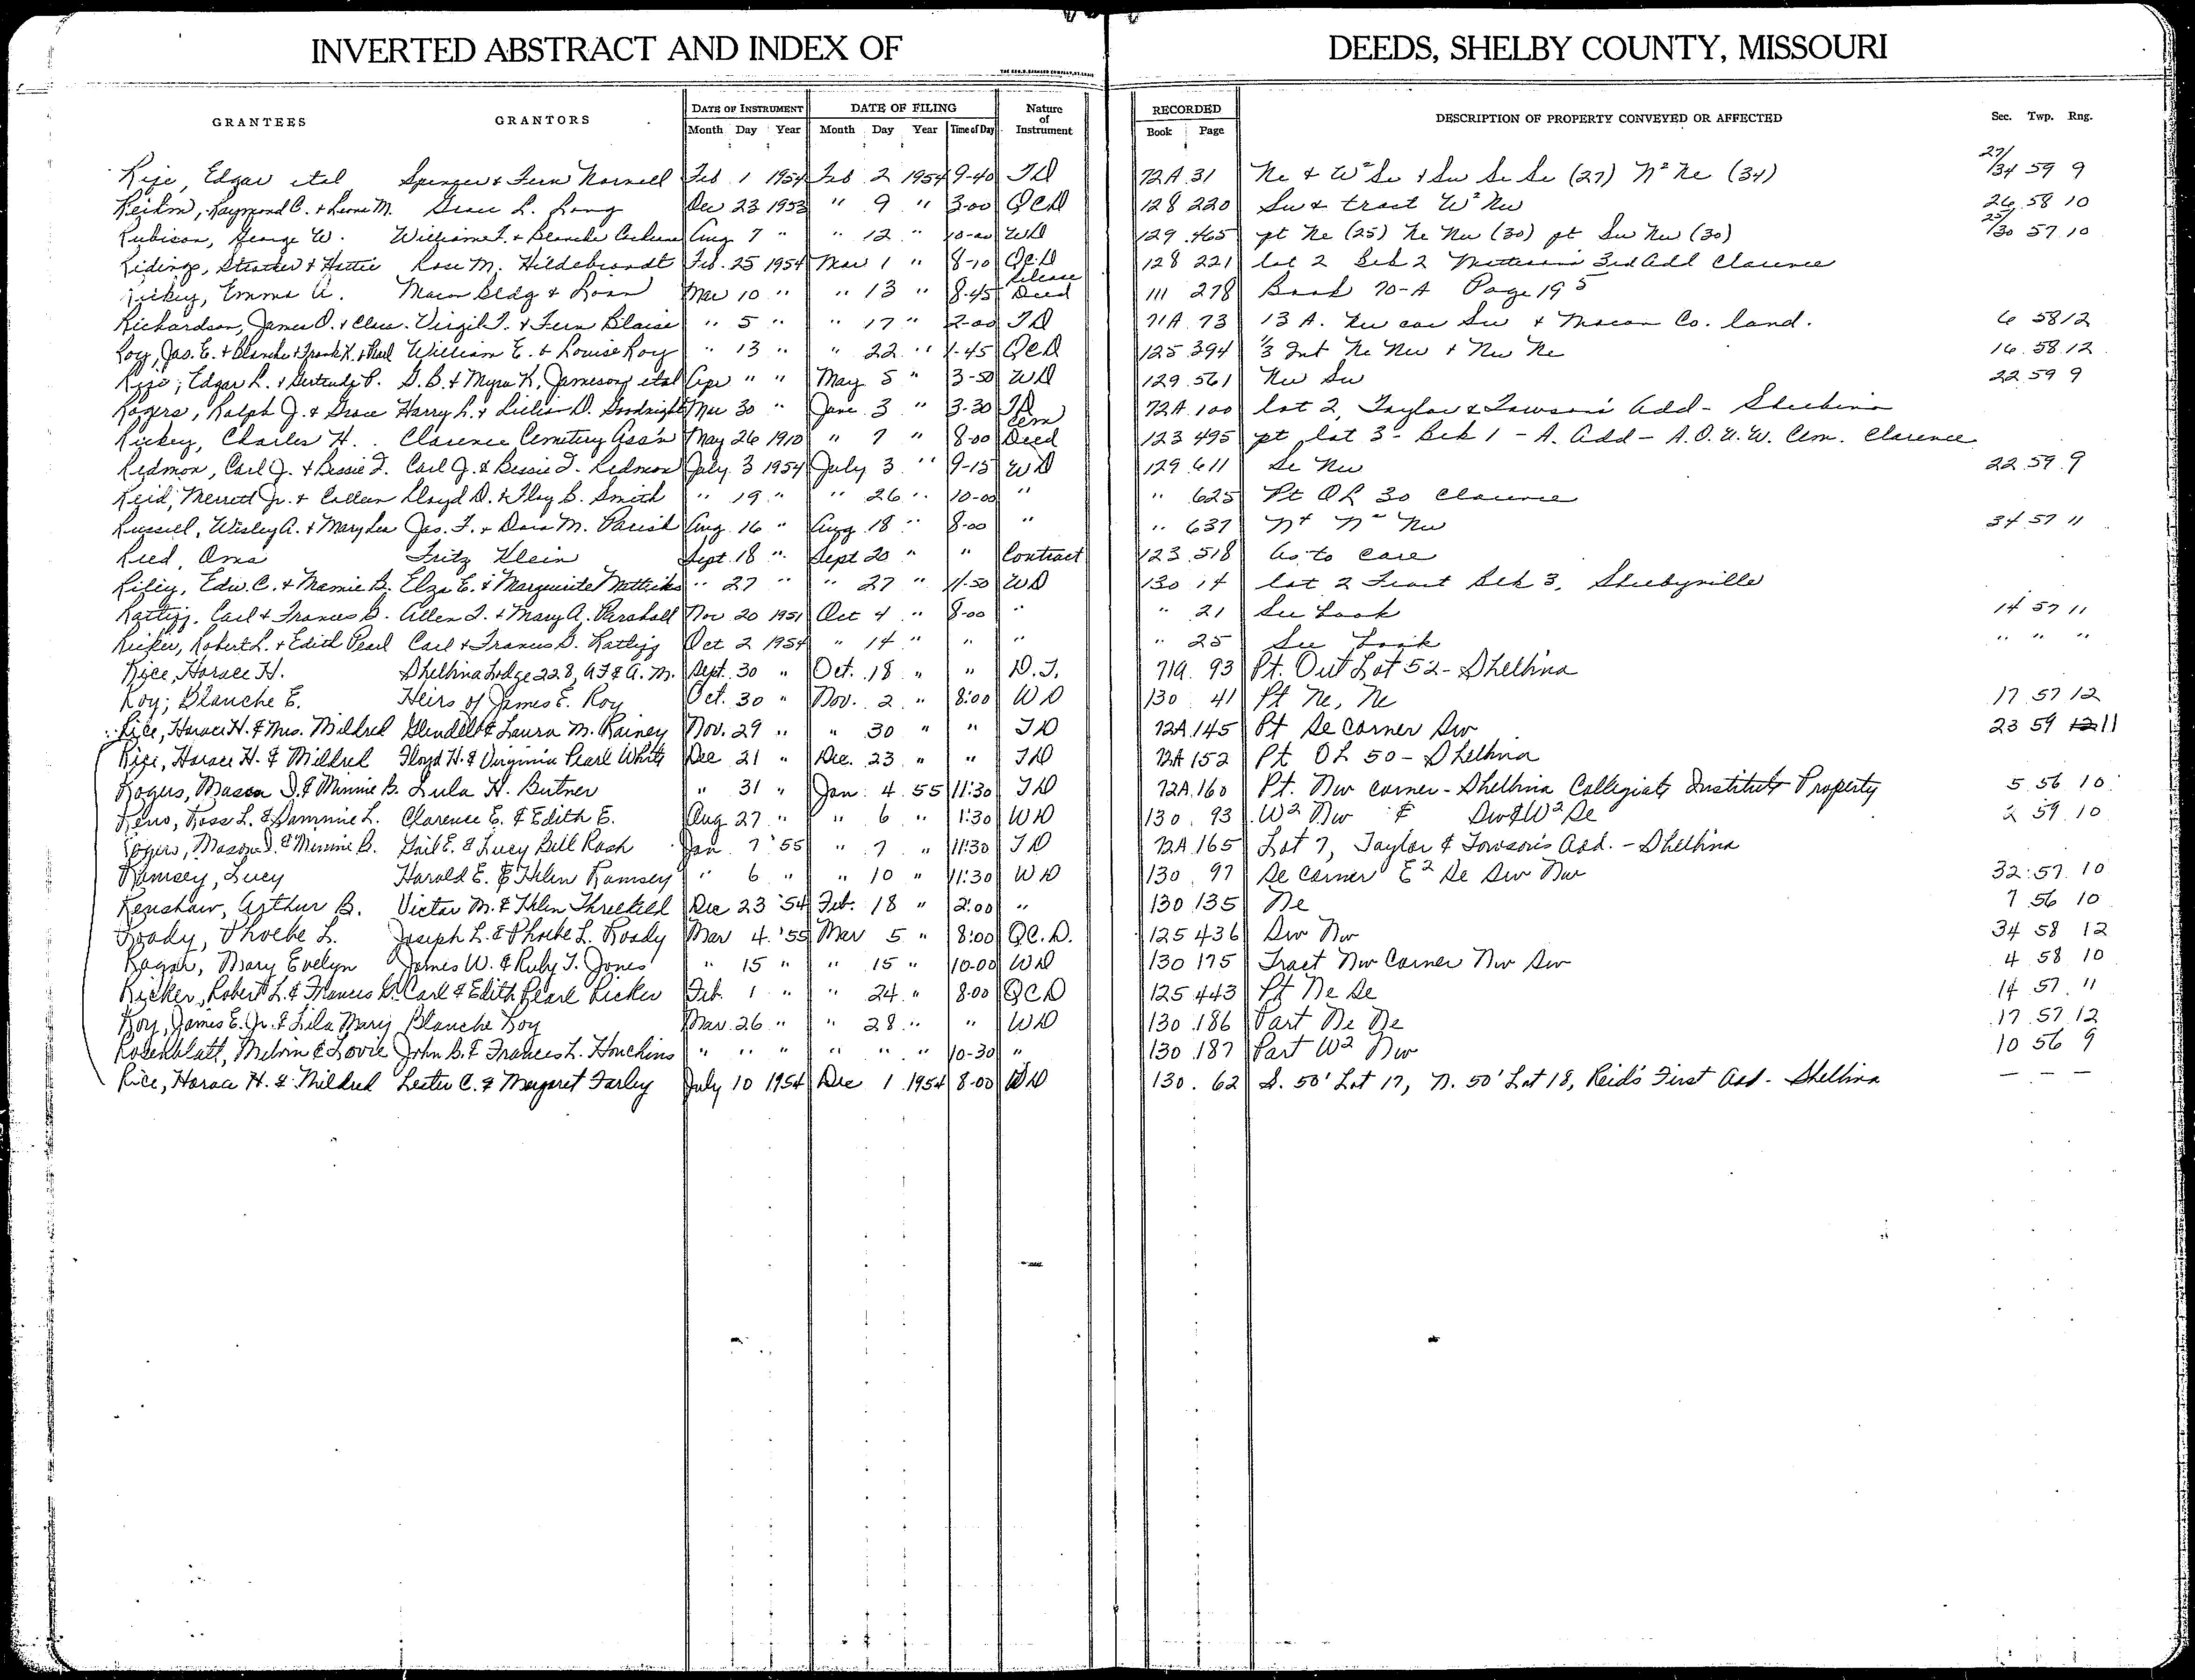 INVERTED ABSTRACT AND INDEX OF DEEDS, SHELBY COUNTY, MISSOURI
GRANTEES GRANTORS DATE OF INSTRUMENT DATE OF FILING Nature of Instrument RECORDED DESCRIPTION OF PROPERTY CONVEYED OR AFFECTED Sec. Twp. Rng.
Month Day Year Month Day Year Time of Day Book Page
Edgar etal Spencer & Fern Feb 1 1954 Feb 2 1954 9-40 T.D 72A 31 Ne & W² Se & Sw Se Se (27) N² Ne (34) 27/34 59 9
Raymond C. & Leone M. Grace L. Long Dec 23 1953 " 9 " 3-00 QCD 128 220 Sw & tract W² Nw 26 58 10
Rubison, George W. William & Blanche Aug 7 " " 12 " 10-00 WD 129 465 pt Ne (25) Ne Nw (30) pt Sw Nw (30) 25/30 57 10
Ridings, Strother & Hattie Rose M. Hildebrandt Feb. 25 1954 Mar 1 " 8-10 QCD 128 221 lot 2 Blk 2 3rd Add Clarence
Rickey, Emma A. Macon Bldg & Loan Mar 10 " " 13 " 8-45 Release Deed 111 278 Book 70-A Page 195
Richardson, James O. & Virgil T. & Fern Blaise " 5 " " 17 " 2-00 T D 71A 73 13 A. Nw cor Sw & Macon Co. land. 6 58 12
Roy, Jas. E. & Blanche & Frank K. & Pearl William E. & Louise Roy " 13 " " 22 " 1-45 QCD 125 394 1/3 Int Ne Nw & Nw Ne 16 58 12
Edgar L. & Gertrude P. G. B. & Myra K. Jameson etal Apr " " May 5 " 3-50 WD 129 561 Nw Sw 22 59 9
Rogers, Ralph J. & Grace Harry L. & Lillian D. Goodnight Mar 30 " June 3 " 3-30 T D 72A 100 lot 2, Taylor & Towson's Add - Shelbina
Rickey, Charles H. Clarence Cemetery Ass'n May 26 1910 " 7 " 8-00 Cem Deed 123 495 pt lot 3 - Blk 1 - A. Add - A.O.U.W. Cem. Clarence
Redmon, Carl J. & Bessie F. Carl J. & Bessie F. Redmon July 3 1954 July 3 " 9-15 WD 129 611 Se Nw 22 59 9
Reid, Merrett Jr. & Colleen Lloyd D. & Floy B. Smith " 19 " " 26 " 10-00 " " 625 Pt OL 30 Clarence
Russell, Wesley A. & Mary Lea Jas. F. & Dora M. Parish Aug. 16 " Aug 18 " 8-00 " " 637 Nw 34 57 11
Reed, Oma Fritz Klein Sept. 18 " Sept 20 " " Contract 123 518 As to care
Riley, Edw. C. & Mamie B. Elza E. & Marguerite " 27 " " 27 " 11-50 WD 130 14 lot 2 Tract Blk 3, Shelbyville
Rattiff, Carl & Frances D. Allen T. & Mary A. Parshall Nov 20 1951 Oct 4 " 8-00 " " 21 See book 14 57 11
Ricker, Robert L. & Edith Pearl Carl & Frances D. Oct 2 1954 " 14 " " " " 25 See book " " "
Rice, Horace H. Shelbina Lodge 228, AF & A. M. Sept. 30 " Oct. 18 " " D. T. 71A 93 Pt. Out Lot 52 - Shelbina
Roy, Blanche E. Heirs of James E. Roy Oct. 30 " Nov. 2 " 8:00 WD 130 41 Pt Ne, Ne 17 57 12
Rice, Horace H. & Mrs. Mildred Glendell & Laura M. Rainey Nov. 29 " " 30 " " T D 72A 145 Pt Se Corner Sw 23 59 12 11
Rice, Horace H. & Mildred Floyd H. & Virginia Pearl White Dec 21 " Dec. 23 " " T D 72A 152 Pt OL 50 - Shelbina
Rogers, Mason D. & Minnie B. Lula H. Butner " 31 " Jan. 4 55 11:30 T D 72A 160 Pt. Nw corner - Shelbina Collegiate Institute Property 5 56 10
Reno, Ross L. & Sammie L. Clarence E. & Edith E. Aug 27 " " 6 " 1:30 WD 130 93 W² Nw & Sw & W² Se 2 59 10
Rogers, Mason D. & Minnie B. Gail E. & Lucy Bell Rash Jan. 7 '55 " 7 " 11:30 T D 72A 165 Lot 7, Taylor & Towson's Add. - Shelbina
Ramsey, Lucy Harold E. & Helen Ramsey " 6 " " 10 " 11:30 WD 130 97 Se Corner E² Se Sw Nw 32 57 10
Renshaw, Arthur B. Victor M. & Helen Threlkeld Dec 23 '54 Feb. 18 " 2:00 " 130 135 Ne 7 56 10
Roady, Phoebe L. Joseph L. & Phoebe L. Roady Mar 4 '55 Mar 5 " 8:00 QC. D. 125 436 Sw Nw 34 58 12
Ragar, Mary Evelyn James W. & Ruby T. Jones " 15 " " 15 " 10-00 WD 130 175 Tract Nw Corner Nw Sw 4 58 10
Ricker, Robert L. & Frances D. Carl & Edith Pearl Ricker Feb. 1 " " 24 " 8-00 QCD 125 443 Pt Ne Se 14 57 11
Roy, James E. Jr. & Lila Mary Blanche Roy Mar. 26 " " 28 " " WD 130 186 Part Ne Ne 17 57 12
Rosenblatt, Melvin & Lovie John B. & Frances L. Houchins " " " " " " 10-30 " 130 187 Part W² Nw 10 56 9
Rice, Horace H. & Mildred Lester C. & Margaret Farley July 10 1954 Dec 1 1954 8-00 WD 130 62 S. 50' Lot 17, N. 50' Lot 18, Reid's First Add - Shelbina — — —